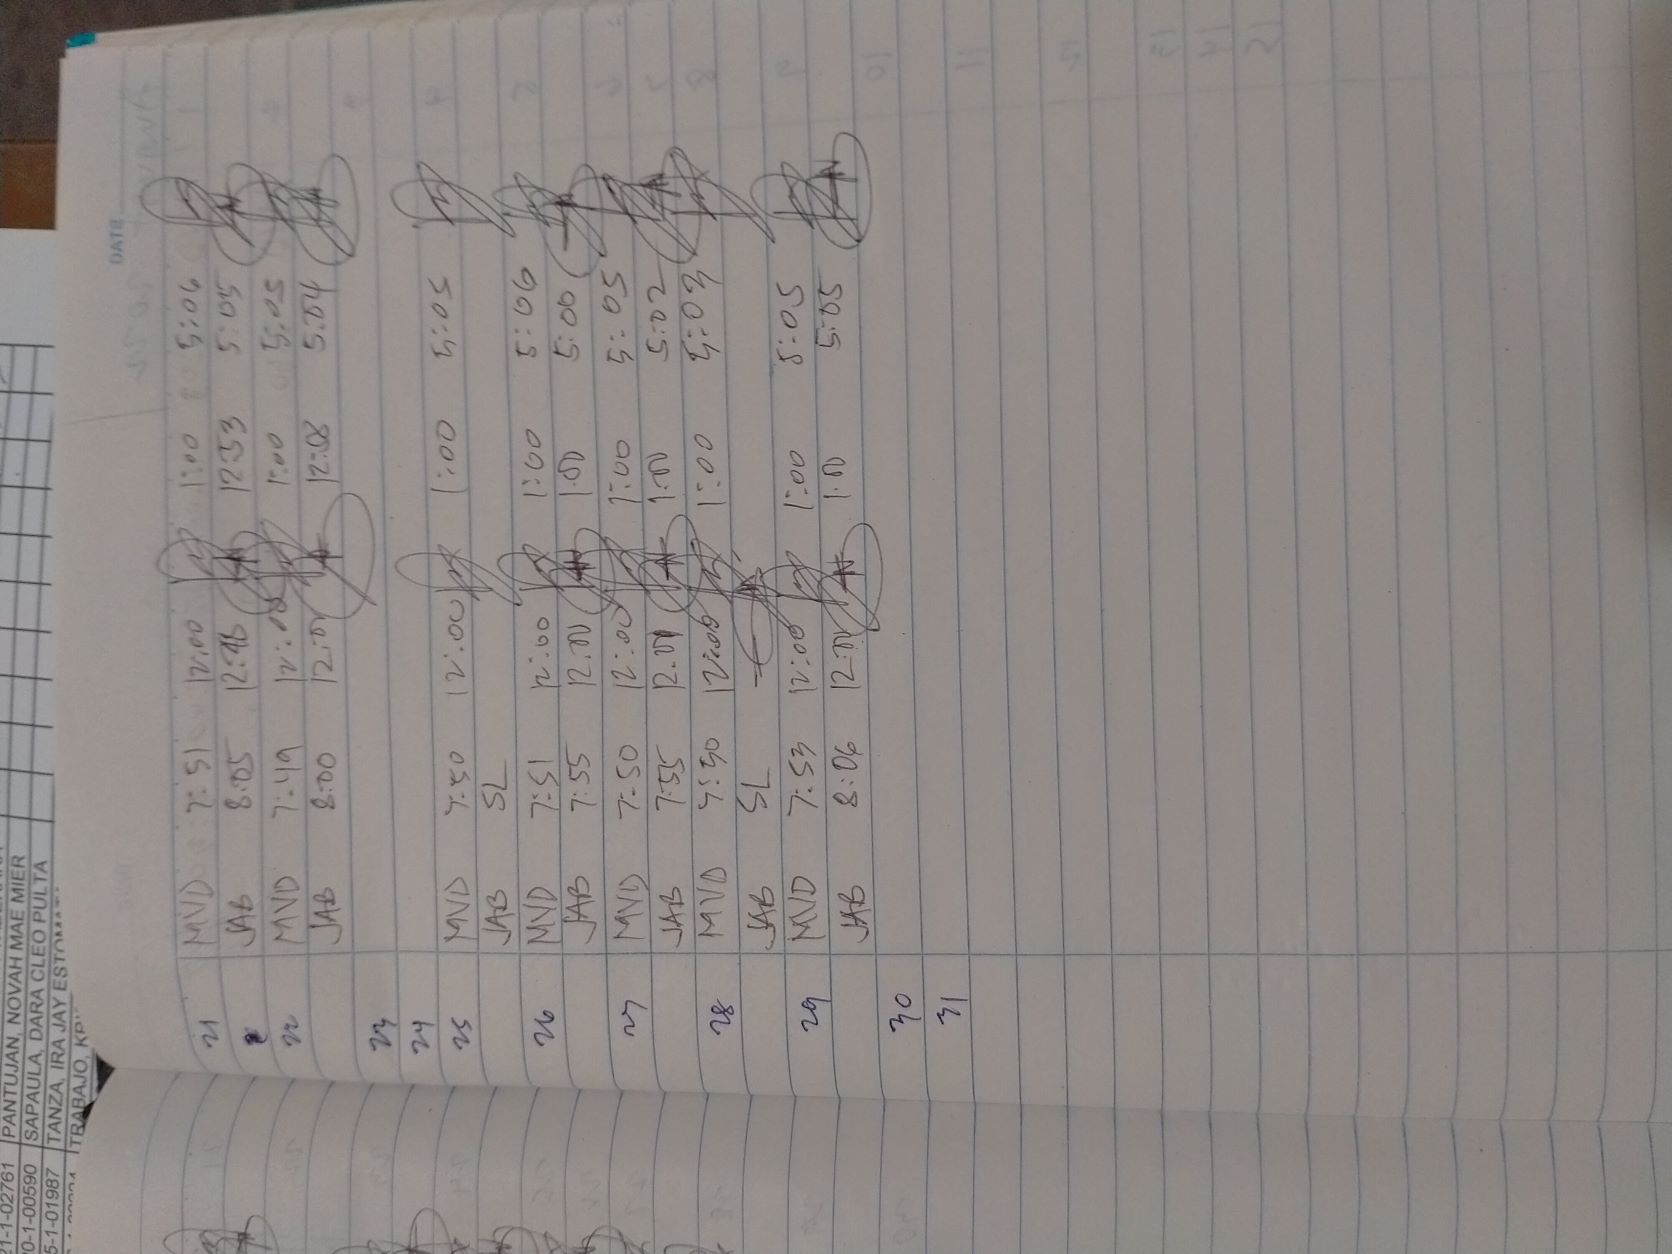 DATE
21 MVD 7:51 12:00 1:00 5:06
JAB 8:05 12:46 12:53 5:05
22 MVD 7:49 12:00 1:00 5:05
JAB 8:00 12:01 12:58 5:04
23
24
25 MVD 7:50 12:00 1:00 5:05
JAB SL
26 MVD 7:51 12:00 1:00 5:06
JAB 7:55 12:00 1:00 5:00
27 MVD 7:50 12:00 1:00 5:05
JAB 7:55 12:01 1:00 5:02
28 MVD 7:50 12:00 1:00 5:03
JAB SL
29 MVD 7:53 12:00 1:00 5:05
JAB 8:06 12:01 1:00 5:05
30
31
21-1-02761 PANTUJAN, NOVAH MAE MIER
0-1-00590 SAPAULA, DARA CLEO PULTA
5-1-01987 TANZA, IRA JAY
TRABAJO,